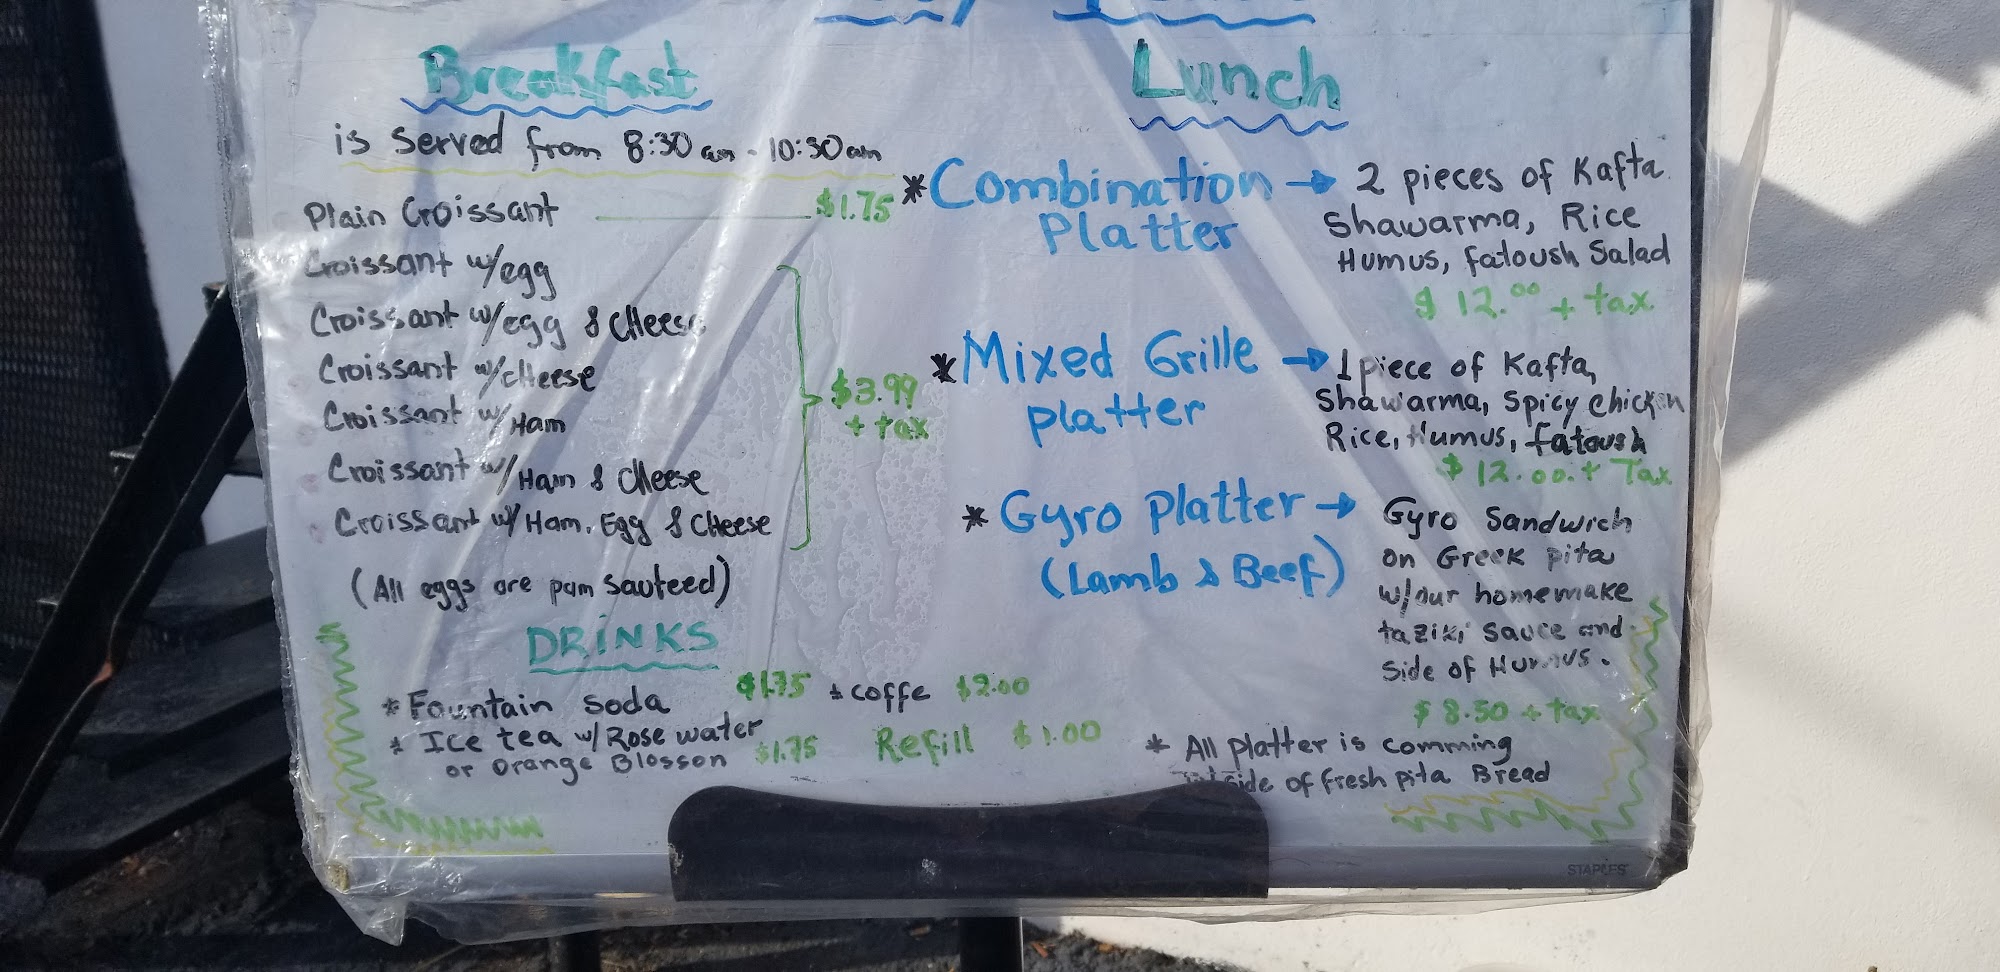 Breakfast
is served from 8:30 am - 10:30 am
Plain Croissant $1.75
Croissant w/egg
Croissant w/egg & Cheese
Croissant w/cheese
Croissant w/Ham
Croissant w/Ham & Cheese
Croissant w/ Ham, Egg & Cheese
$3.99
+ tax
(All eggs are pam sauteed)
DRINKS
* Fountain Soda $1.75 * Coffe $2.00
* Ice tea w/ Rose water
or Orange Blosson $1.75 Refill $1.00
Lunch
* Combination → 2 pieces of Kafta
Platter Shawarma, Rice
Humus, fatoush Salad
$12.00 + tax
* Mixed Grille → 1 piece of Kafta,
platter Shawarma, Spicy chicken
Rice, Humus, fatoush
$12.00 + Tax
* Gyro Platter → Gyro Sandwich
(Lamb & Beef) on Greek pita
w/our homemake
taziki sauce and
Side of Humus.
$8.50 + tax
* All platter is comming
of fresh pita Bread
STAPLES